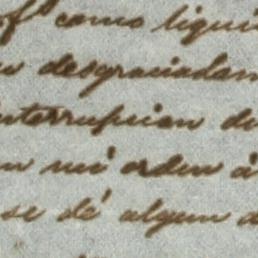 como liqui
desgraciadam
interrupcion de
en mi orden á
se dé algun d